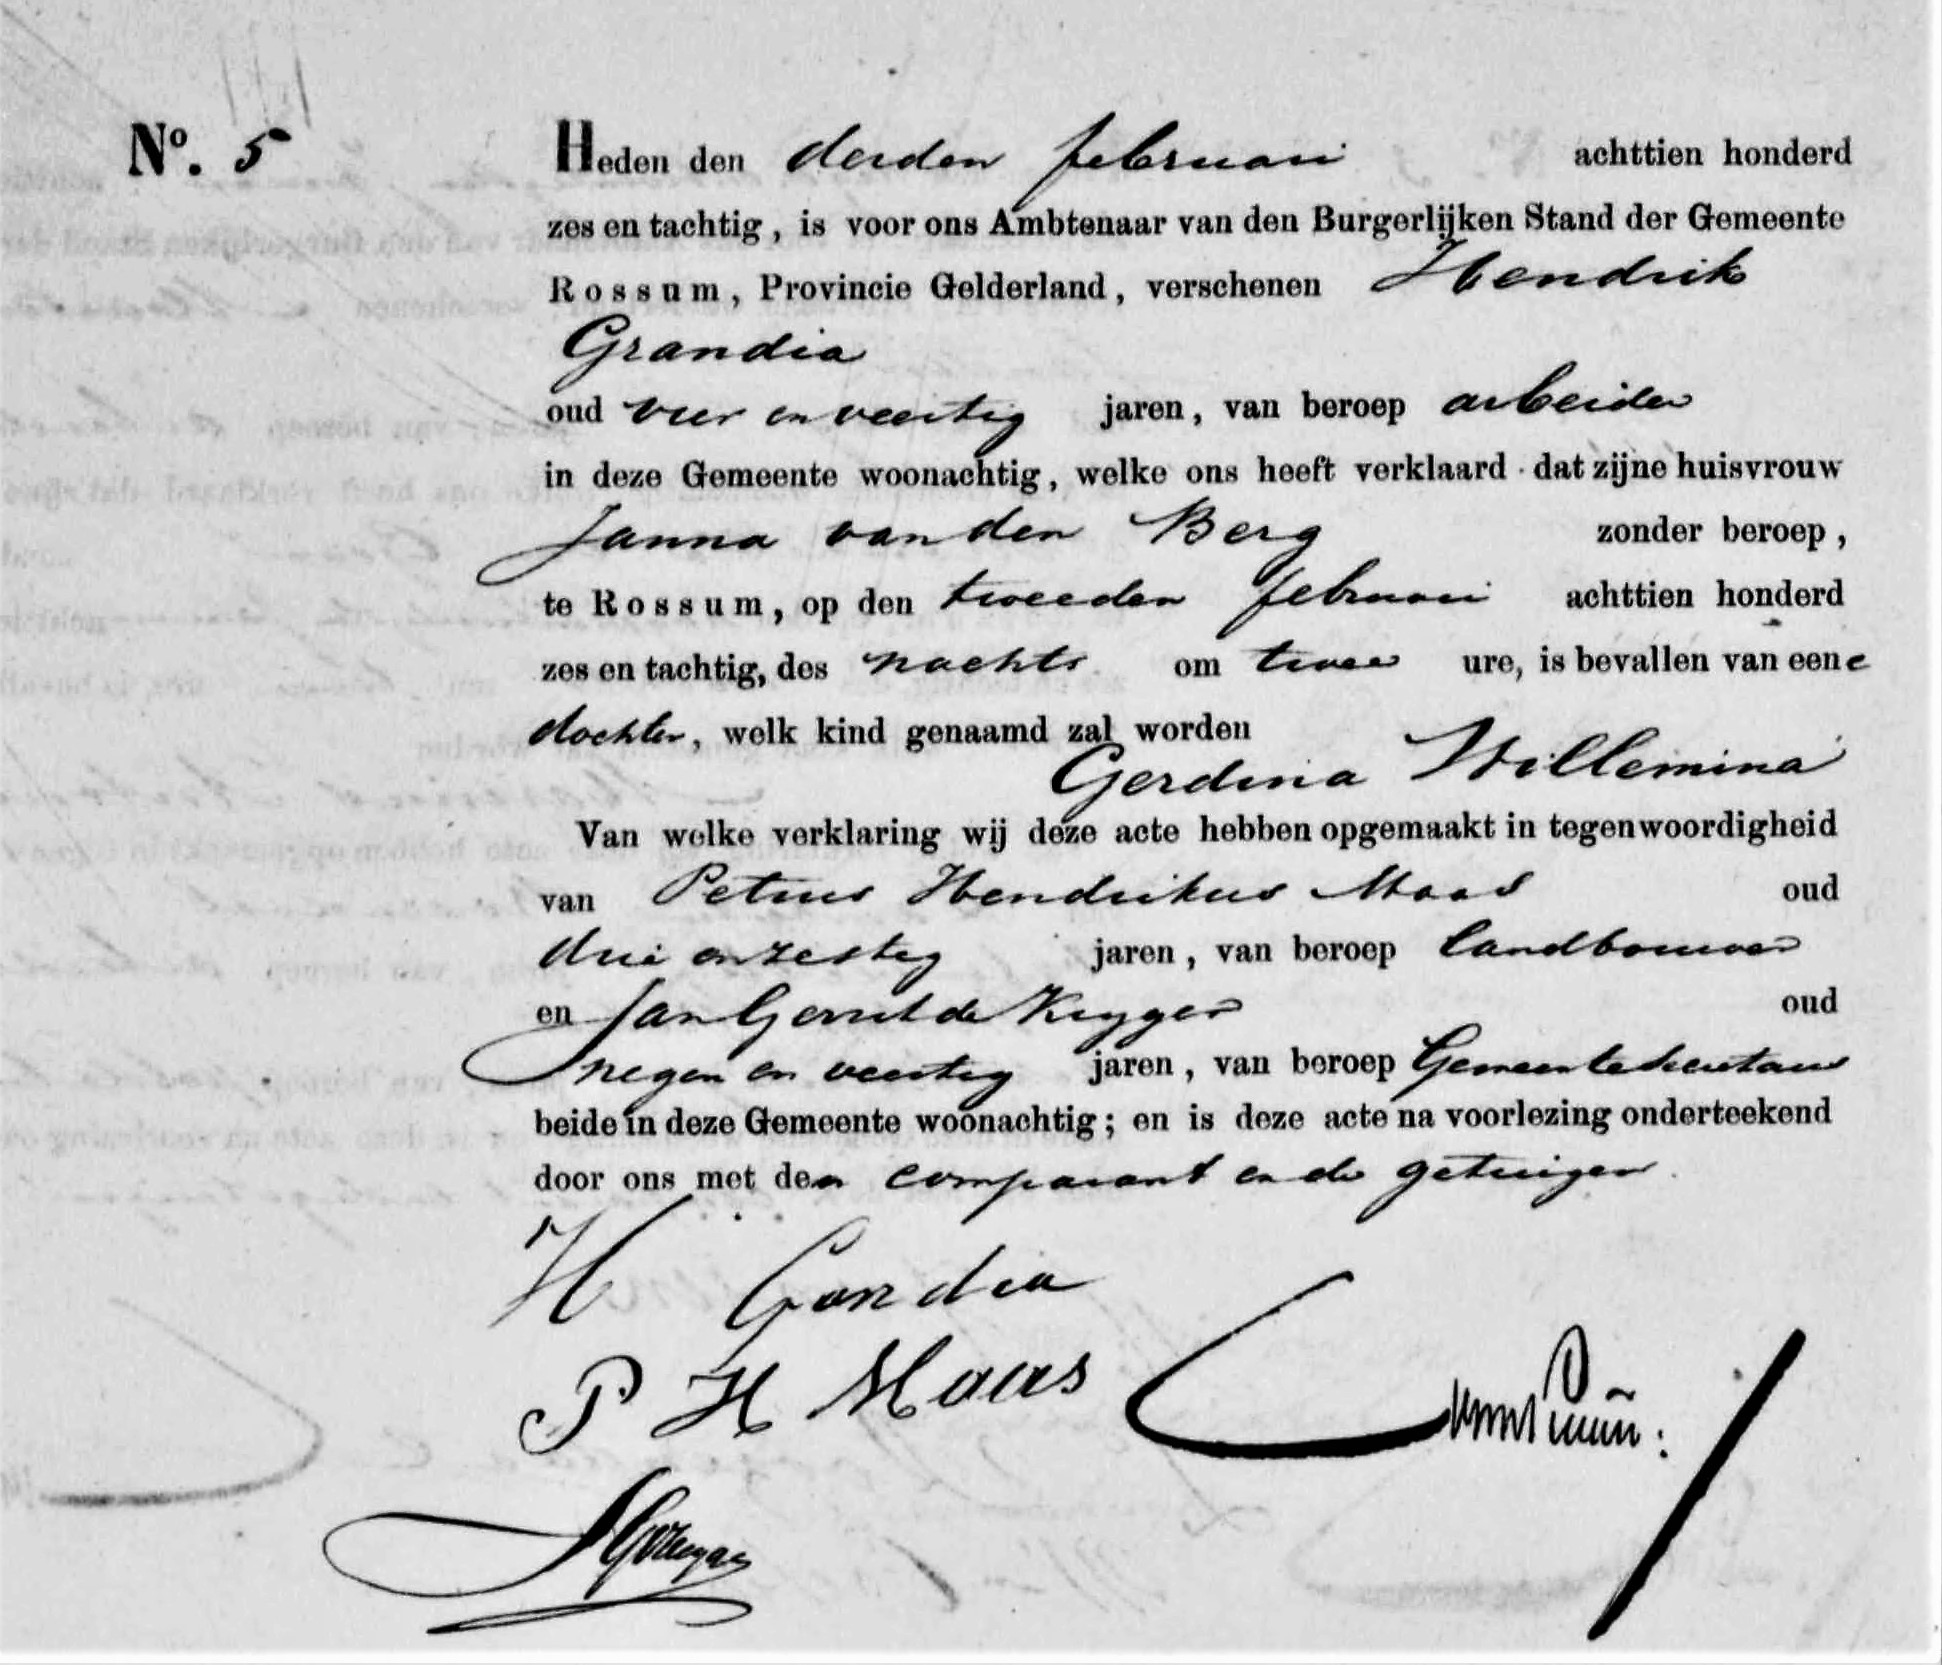 No. 5
Heden den derden februari achttien honderd
zes en tachtig, is voor ons Ambtenaar van den Burgerlijken Stand der Gemeente
Rossum, Provincie Gelderland, verschenen Hendrik
Grandia
oud vier en veertig jaren, van beroep arbeider
in deze Gemeente woonachtig, welke ons heeft verklaard dat zijne huisvrouw
Janna van den Berg zonder beroep,
te Rossum, op den tweeden februari achttien honderd
zes en tachtig, des nachts om twee ure, is bevallen van eene
dochter, welk kind genaamd zal worden
Gerdina Willemina
Van welke verklaring wij deze acte hebben opgemaakt in tegenwoordigheid
van Petrus Hendrikus Maas oud
drie en zestig jaren, van beroep landbouwer
en Jan Gerrit de Kuyger oud
negen en veertig jaren, van beroep Gemeentesecretaris
beide in deze Gemeente woonachtig; en is deze acte na voorlezing onderteekend
door ons met den comparant en de getuigen
H Gandia
P H Maas